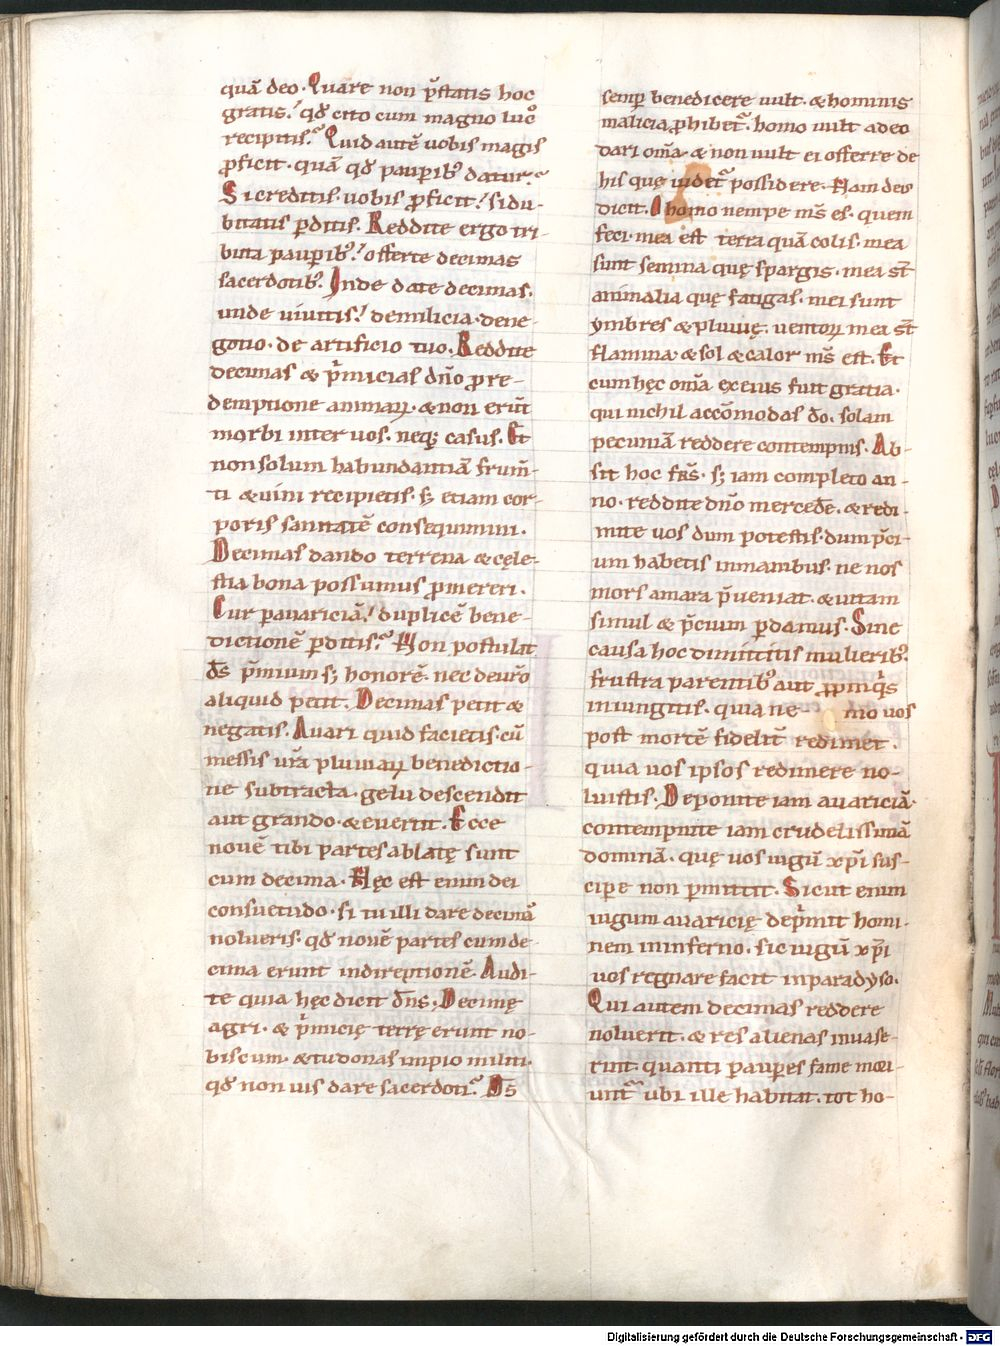 quā deo. Quare non p̄statis hoc
gratis? qđ cito cum magno luc̊o
recipitis? Quid autē uobis magis
ꝓficit. quā qđ pauꝑib; datur?
Si creditis. uobis ꝓficit! si du-
bitatis ꝑditis. Reddite ergo tri-
buta pauꝑib;! offerte decimas
sacerdotib;. Inde date decimas.
unde uiuitis! de milicia. de ne-
gotio. de artificio tuo. Reddite
decimas & p̍micias dn̄o pro re-
demptione animaꝝ. & non erūt
morbi inter uos. neq; casus. Et
non solum habundantiā frum̄-
ti & uini recipietis. s; etiam cor-
poris sanitatē consequimini.
Decimas dando terrena & cęle-
stia bona possumus ꝓmereri.
Cur ꝑ auariciā! duplicē bene-
dictionē ꝑditis? Non postulat
ds̄ p̄mium s; honorē. nec de ur̄o
aliquid petit. Decimas petit &
negatis. Auari quid facietis. cū
messis ur̄a pluuiaꝝ benedictio-
ne subtracta. gelu descendit
aut grando. & euertit. Ecce
nouē tibi partes ablatę sunt
cum decima. Hęc est enim dei
consuetudo. si tu illi dare decimā
nolueris. qđ nouē partes cum de-
cima erunt in direptionē. Audi-
te quia hęc dicit dn̄s; Decimę
agri. & p̍micię terrę erunt no-
biscum. & tu donas impio militi.
qđ non uis dare sacerdoti? Ds̄
semꝑ benedicere uult. & hominis
malicia ꝓhibet̄. homo uult a deo
dari om̄a. & non uult ei offerre de
his quę uidet̄ possidere. Nam deus
dicit. O homo nempe ms̄ es. quem
feci. mea est terra quā colis. mea
sunt semina quę spargis. mea st̄
animalia quę fatigas. mei sunt
ymbres & pluuię. uentoꝝ mea st̄
flamina. & sol & calor ms̄ est. Et
cum hęc om̄a ex eius fuit gratia.
qui nichil accōmodas do̅. solam
pecuniā reddere contempnis. Ab-
sit hoc frs̄. s; iam completo an-
no. reddite dn̄o mercedē. & redi-
mite uos dum potestis. dum p̄ci-
um habetis in manibus. ne nos
mors amara p̄ueniat. & uitam
simul & p̄cium ꝑdamus. Sine
causa hoc dimittitis mulierib;.
frustra parentib; aut ꝓpinq̍s
iniungitis. quia ne- mo uos
post mortē fidelit̄ redimet.
quia uos ipsos redimere no-
luistis. Deponite iam auariciā.
contempnite iam crudelissimā
dominā. quę uos iugū xp̄i sus-
cipere non ꝑmittit. Sicut enim
iugum auaricię dep̍mit homi-
nem in inferno. sic iugū xp̄i
uos regnare facit in paradyso.
Qui autem decimas reddere
noluerit. & res alienas inuase-
rint. quanti pauꝑes fame mori-
unt̄ ubi ille habitat. tot ho-
Digitalisierung gefördert durch die Deutsche Forschungsgemeinschaft - DFG